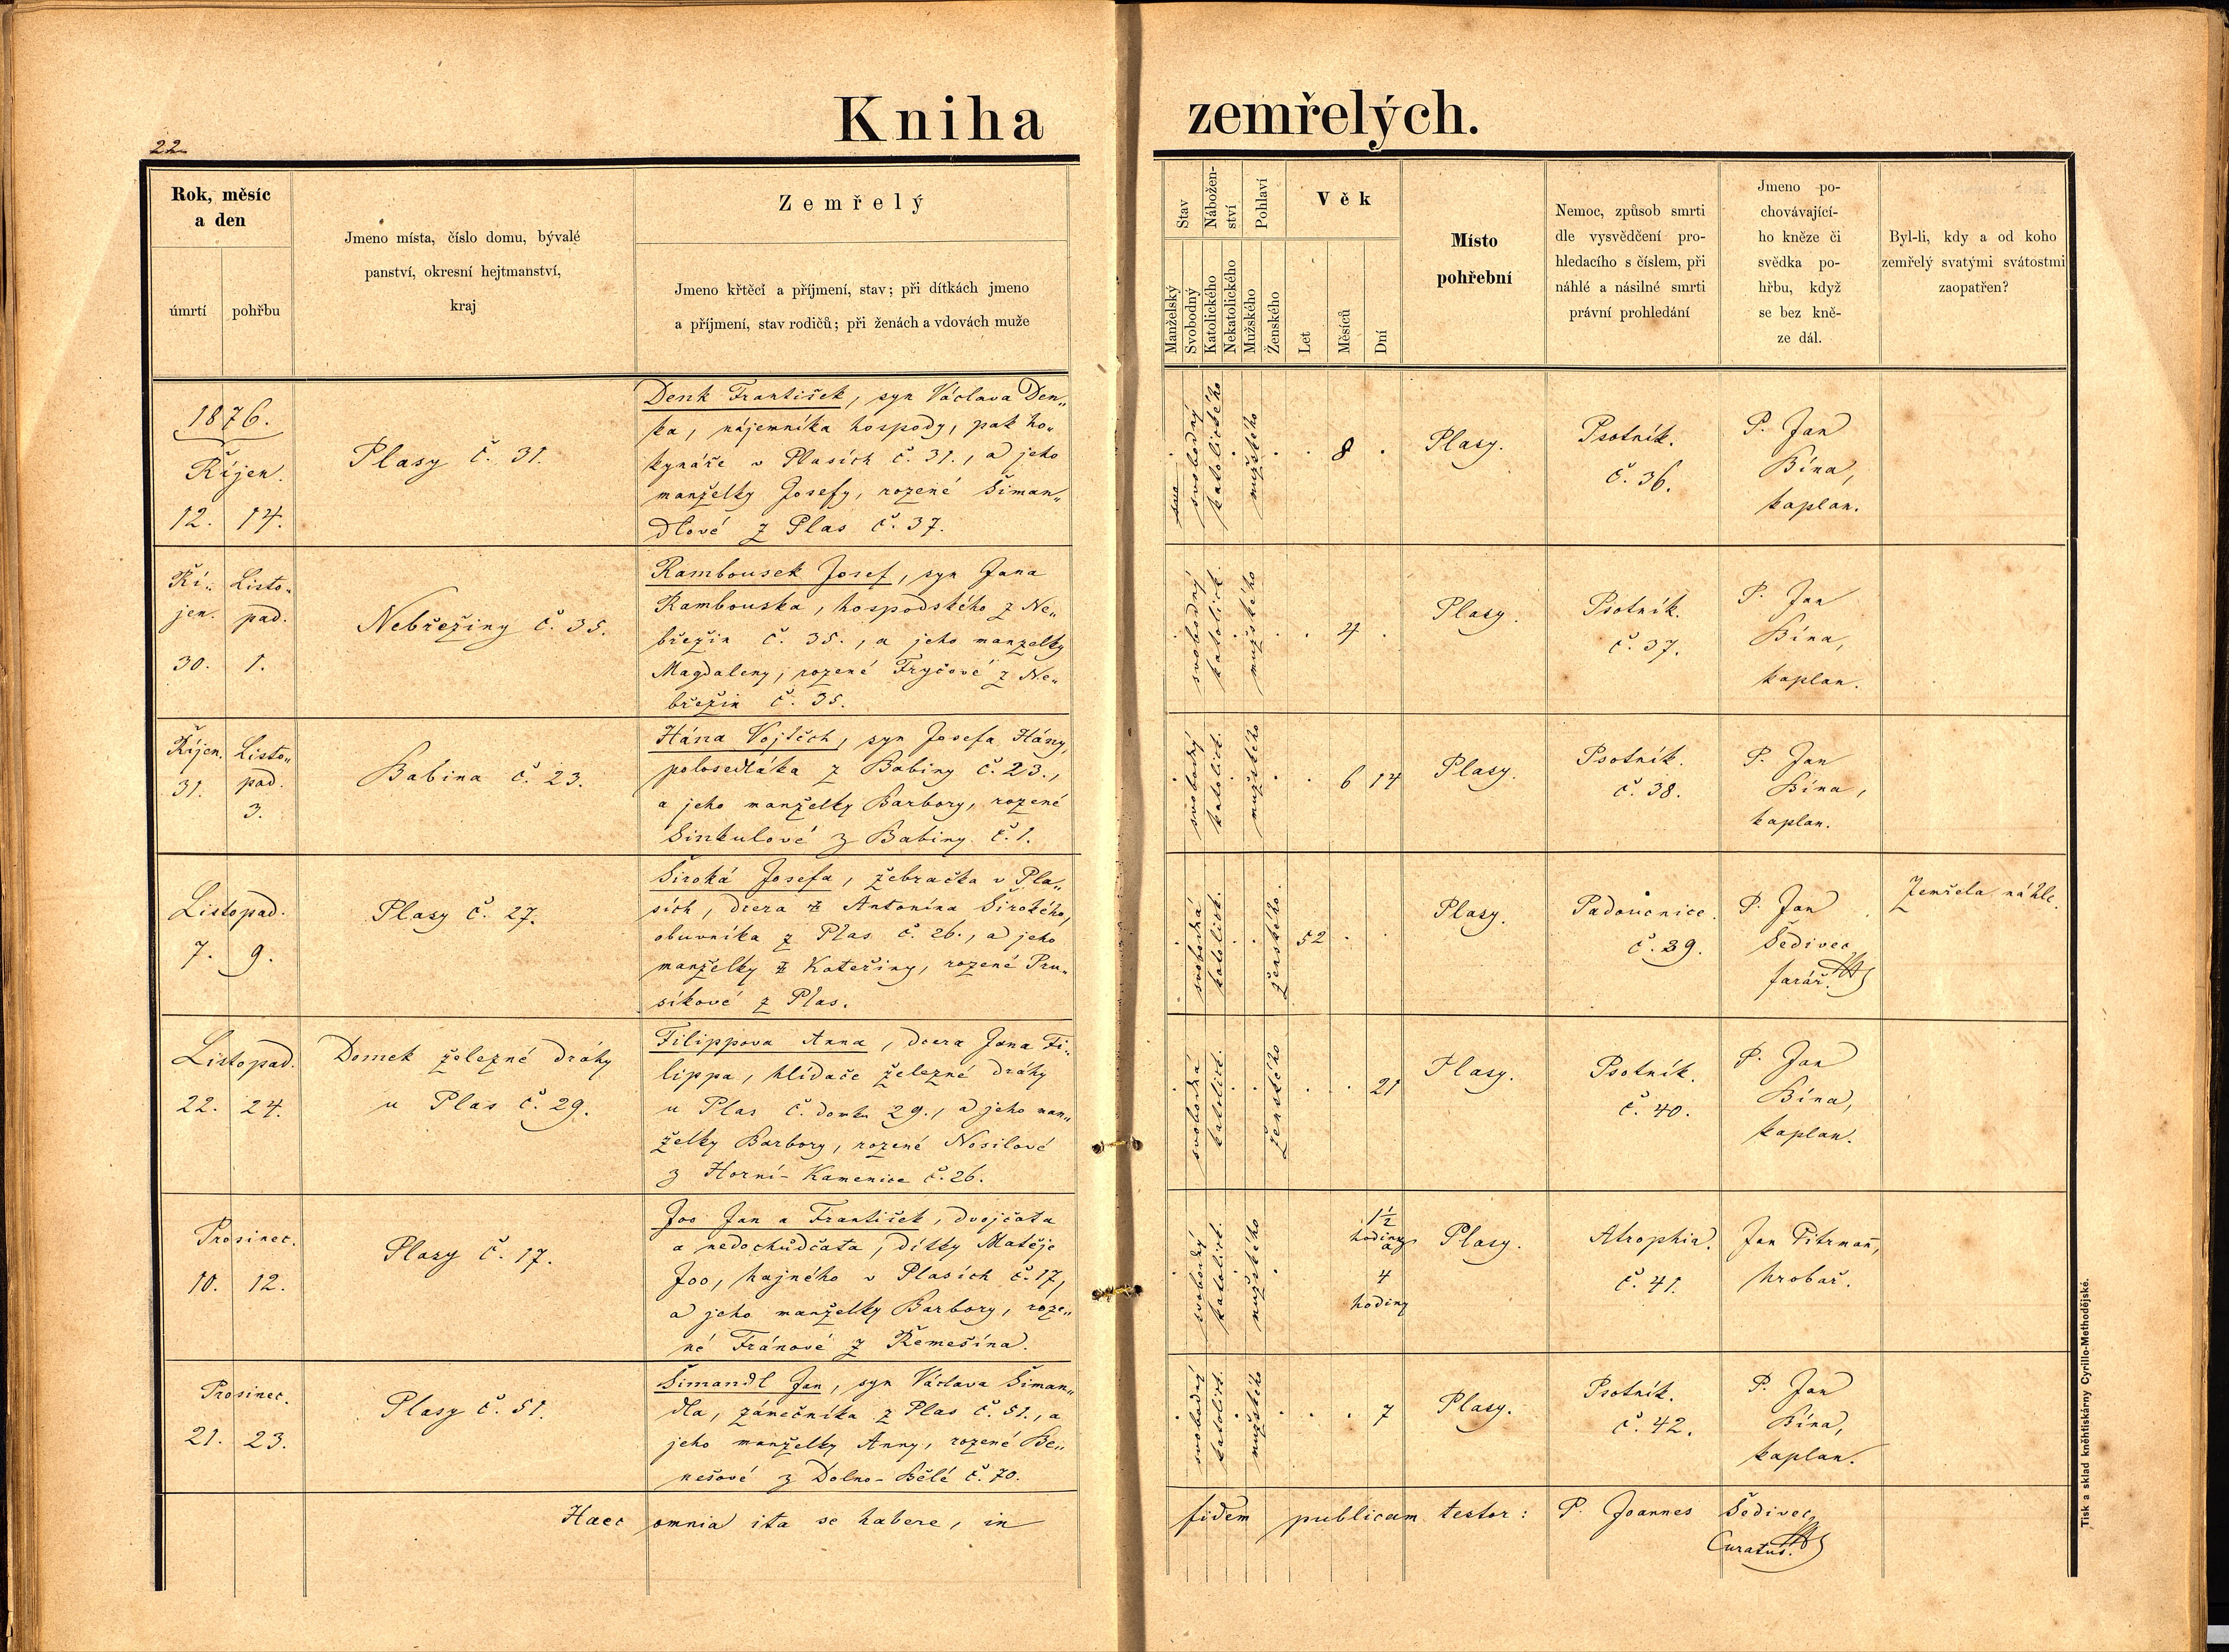 Kniha zemřelých.
22
Rok, měsíc
a den
úmrtí pohřbu
Jmeno místa, číslo domu, bývalé
panství, okresní hejtmanství,
kraj
Zemřelý
Jmeno křtěcí a příjmení, stav; při dítkách jmeno
a příjmení, stav rodičů; při ženách a vdovách muže
Stav
Manželský
Svobodný
Nábožen-
ství
Katolického
Nekatolického
Pohlaví
Mužského
Ženského
Věk
Let
Měsíců
Dní
Místo
pohřební
Nemoc, způsob smrti
dle vysvědčení pro-
hledacího s číslem, při
náhlé a násilné smrti
právní prohledání
Jmeno po-
chovávající-
ho kněze či
svědka po-
hřbu, když
se bez kně-
ze dál.
Byl-li, kdy a od koho
zemřelý svatými svátostmi
zaopatřen?
1876.
Říjen.
12. 14.
Plasy č. 31.
Denk František, syn Václava Den„
ka, nájemníka hospody, pak ho„
kynáře v Plasích č. 31., a jeho
manželky Josefy, rozené Šiman„
dlové z Plas č. 37.
svobodný
katolického
mužského
8
Plasy.
Psotník.
č. 36.
P. Jan
Bína,
kaplan.
Ří„ Listo„
jen. pad.
30. 1.
Nebřeziny č. 35.
Rambousek Josef, syn Jana
Rambouska, hospodského z Ne„
břežin č. 35., a jeho manželky
Magdaleny, rozené Fryčové z Ne„
břežin č. 35.
svobodný
katolick.
mužského
4
Plasy.
Psotník.
č. 37.
P. Jan
Bína,
kaplan.
Říjen. Listo„
31. pad.
3.
Babina č. 23.
Hána Vojtěch, syn Josefa Hány,
polosedláka z Babiny č. 23.,
a jeho manželky Barbory, rozené
Sinkulové z Babiny č. 1.
svobodný
katolick.
mužského
6 14
Plasy.
Psotník.
č. 38.
P. Jan
Bína,
kaplan.
Listopad.
7. 9.
Plasy č. 27.
Široká Josefa, žebračka v Pla„
sích, dcera Antonína Širokého,
obuvníka z Plas č. 26., a jeho
manželky Kateřiny, rozené Pru„
síkové z Plas.
svobodná
katolick.
ženského.
52
Plasy.
Padoucnice.
č. 39.
P. Jan
Šedivec
farář.
Zemřela náhle.
Listopad.
22. 24.
Domek železné dráhy
u Plas č. 29.
Filippova Anna, dcera Jana Fi„
lippa, hlídače železné dráhy
u Plas č. domk. 29., a jeho man„
želky Barbory, rozené Nosilové
z Horní-Kamenice č. 26.
svobodná
katolick.
ženského
21
Plasy.
Psotník.
č. 40.
P. Jan
Bína,
kaplan.
Prosinec.
10. 12.
Plasy č. 17.
Joo Jan a František, dvojčata
a nedochůdčata, dítky Matěje
Joo, hajného v Plasích č. 17,
a jeho manželky Barbory, roze„
né Fránové z Řemešína.
svobodný
katolick.
mužského
1½
hodiny
a
4
hodiny
Plasy.
Atrophia.
č. 41.
Jan Pitrmann,
hrobař.
Prosinec.
21. 23.
Plasy č. 51.
Šimandl Jan, syn Václava Šiman„
dla, zámečníka z Plas č. 51., a
jeho manželky Anny, rozené Be„
nešové z Dolno-Bělé č. 70.
svobodný
katolick.
mužského
7
Plasy.
Psotník.
č. 42.
P. Jan
Bína,
kaplan.
Haec omnia ita se habere, in fidem publicam testor: P. Joannes Šedivec
Curatus.
Tisk a sklad kněhtiskárny Cyrillo-Methodějské.